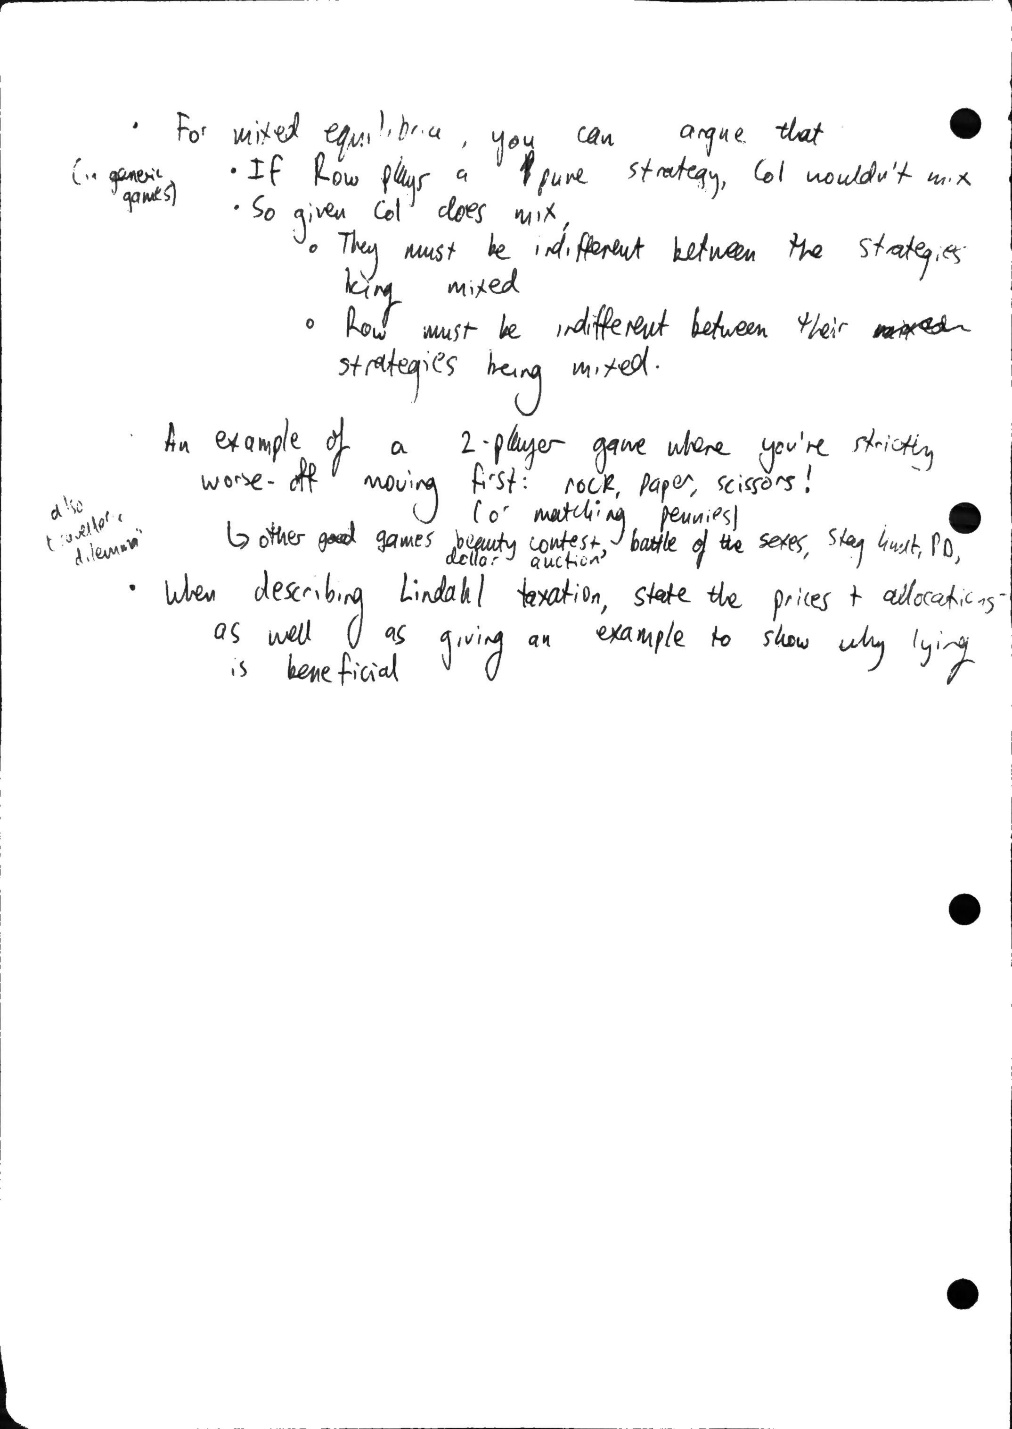 • For mixed equilibria, you can argue that
(in generic games)
• If Row plays a pure strategy, Col wouldn't mix
• So given Col does mix,
o They must be indifferent between the strategies
being mixed
o Row must be indifferent between their mixed
strategies being mixed.
· An example of a 2-player game where you're strictly
worse-off moving first: rock, paper, scissors!
(or matching pennies)
also
traveller's
dilemma
↳ other good games beauty contest, battle of the sexes, stag hunt, PD,
dollar auction,
• When describing Lindahl taxation, state the prices + allocations
as well as giving an example to show why lying
is beneficial